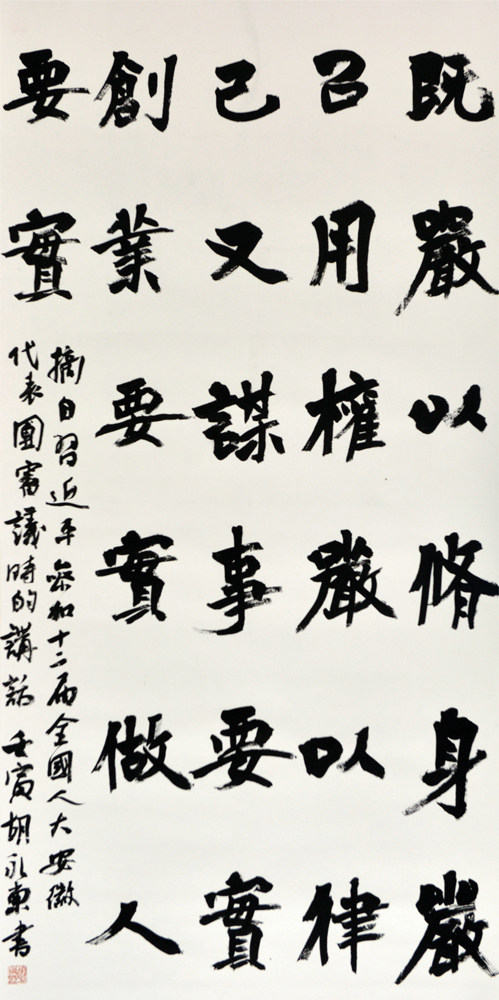 既嚴以脩身嚴
㠯用權嚴以律
己又謀事要實
創業要實做人
要實
摘自習近平參加十二届全國人大安徽
代表團審議時的講話 壬寅胡永東書